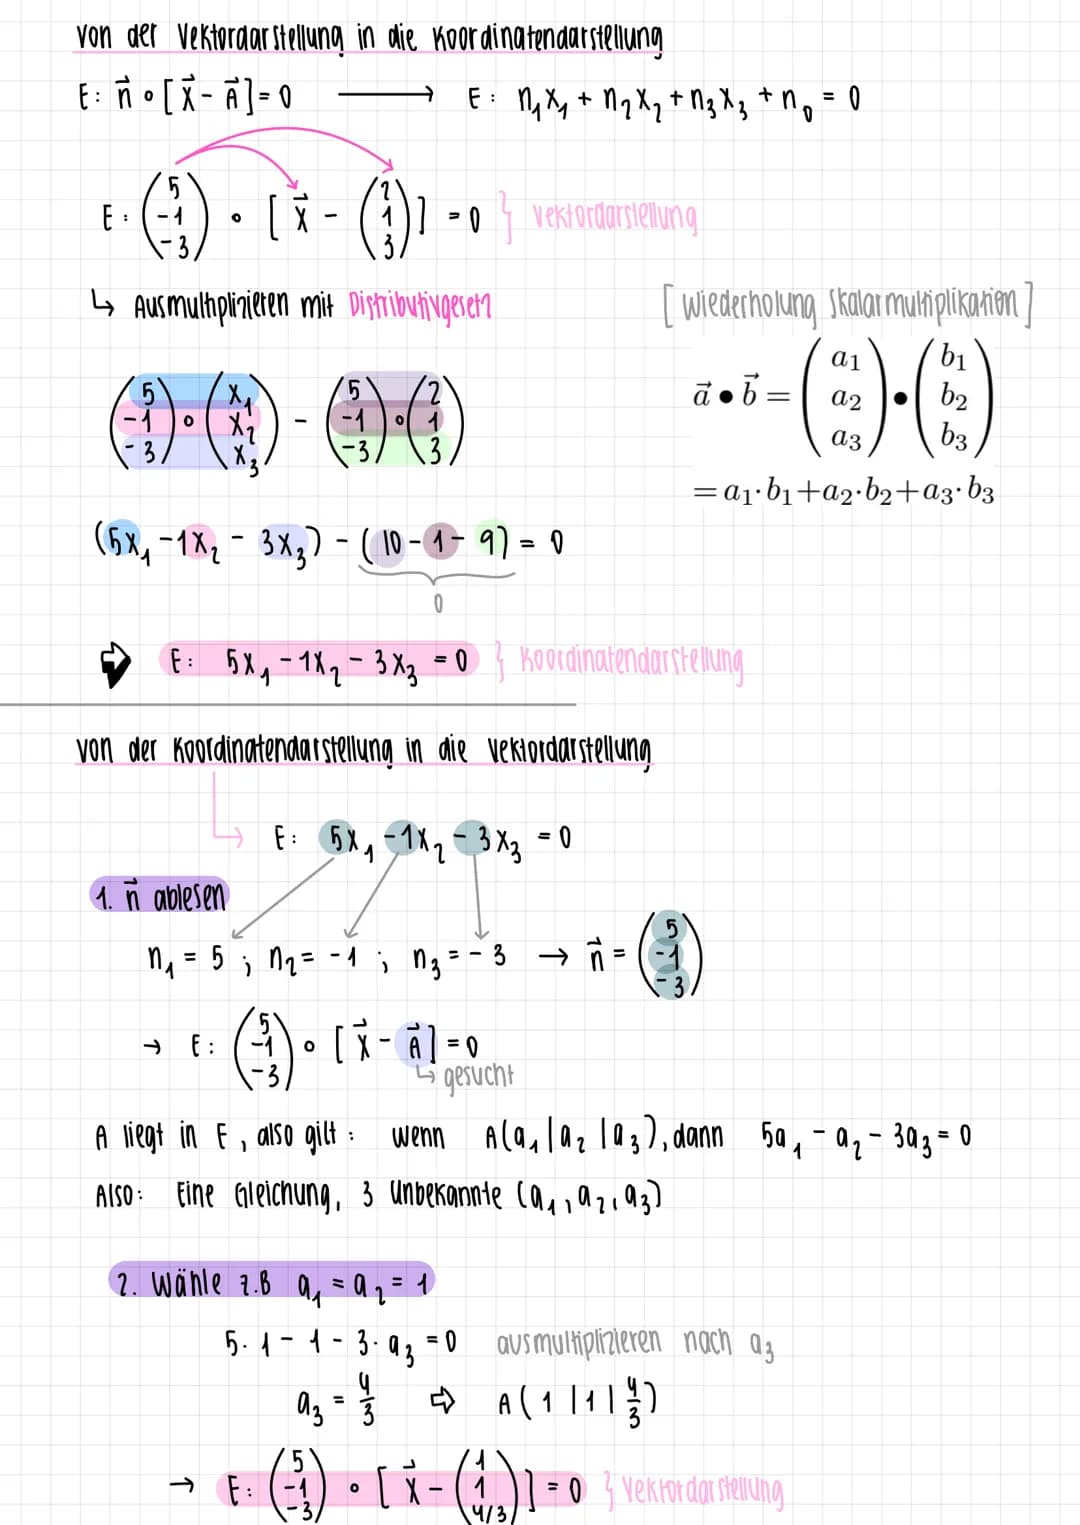 von der Vektordarstellung in die Koordinatendarstellung
E: n⃗ ∘ [x⃗ - A⃗] = 0 ⟶ E: n₁x₁ + n₂x₂ + n₃x₃ + n₀ = 0
E: (5 -1 -3) ∘ [x⃗ - (2 1 3)] = 0 } Vektordarstellung
↳ Ausmultiplizieren mit Distributivgesetz
[Wiederholung Skalarmultiplikation]
a⃗ • b⃗ = (a1 a2 a3) • (b1 b2 b3)
= a1·b1+a2·b2+a3·b3
(5 -1 -3) ∘ (x₁ x₂ x₃) - (5 -1 -3) ∘ (2 1 3)
(5x₁ - 1x₂ - 3x₃) - (10 - 1 - 9) = 0
0
E: 5x₁ - 1x₂ - 3x₃ = 0 } Koordinatendarstellung
von der Koordinatendarstellung in die Vektordarstellung
↳ E: 5x₁ - 1x₂ - 3x₃ = 0
1. n⃗ ablesen
n₁ = 5 ; n₂ = -1 ; n₃ = -3 → n⃗ = (5 -1 -3)
→ E: (5 -1 -3) ∘ [x⃗ - A⃗] = 0
↳ gesucht
A liegt in E, also gilt: wenn A(a₁|a₂|a₃), dann 5a₁ - a₂ - 3a₃ = 0
Also: Eine Gleichung, 3 Unbekannte (a₁, a₂, a₃)
2. Wähle z.B a₁ = a₂ = 1
5·1 - 1 - 3·a₃ = 0 ausmultiplizieren nach a₃
a₃ = 4/3 ⇨ A(1|1|4/3)
→ E: (5 -1 -3) ∘ [x⃗ - (1 1 4/3)] = 0 } Vektordarstellung